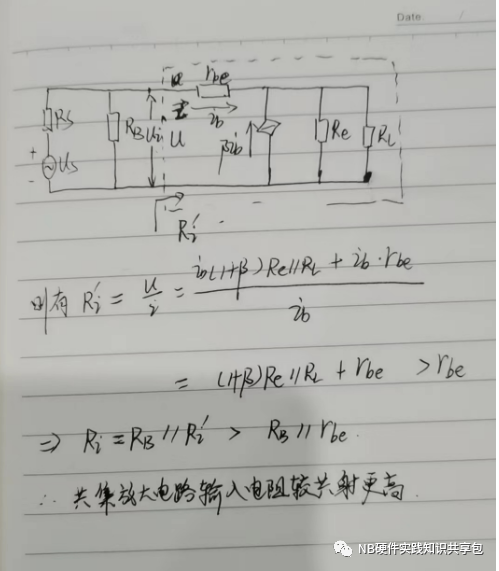 Date. /
Rs
+
Us
-
RB
Ui
U
rbe
ib
βib
Re
RL
Ri'
则有 Ri' = u/i = (ib(1+β)Re//RL + ib·rbe)/ib
= (1+β)Re//RL + rbe > rbe
⇒ Ri = RB // Ri' > RB // rbe.
∴ 共集放大电路输入电阻较共射更高.
NB硬件实践知识共享包